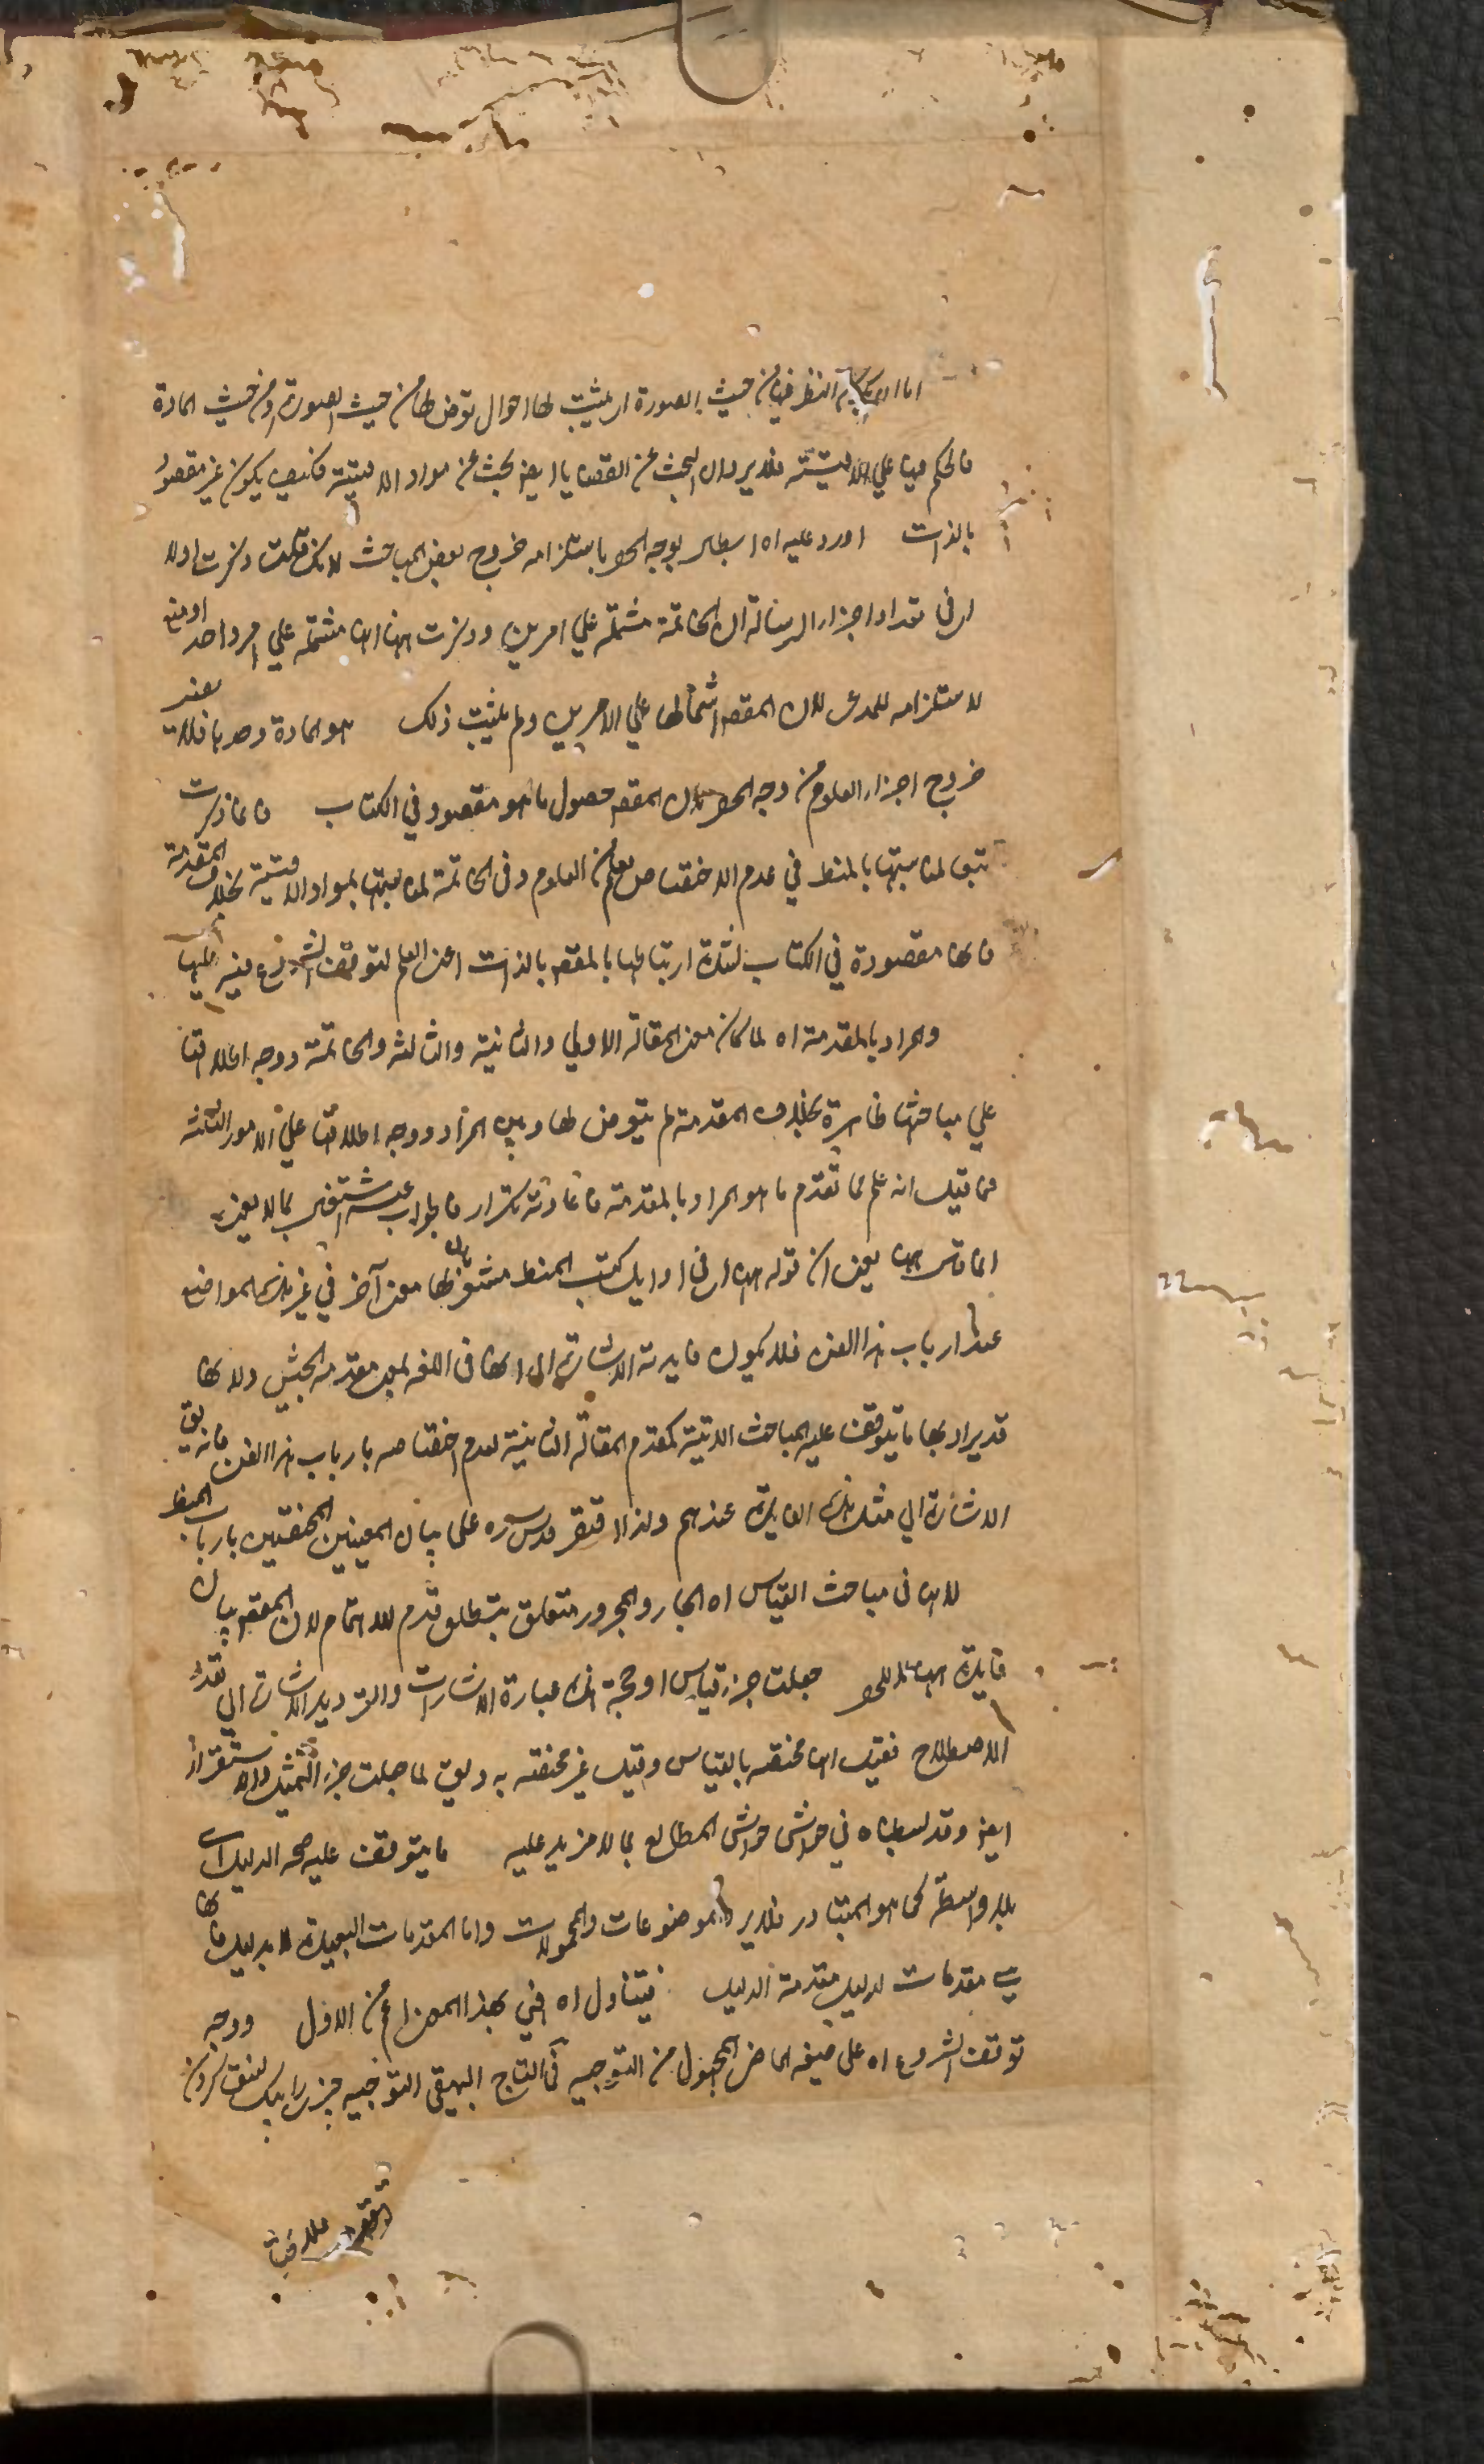 اما ان يكون النظر فيها من حيث الصورة اى يثبت لها احوال تعرض لها من حيث الصورة او من حيث المادة
فالحكم فيها على الاقيسة فلا يرد ان البحث عن القضايا ايض بحث عن مواد الاقيسة فكيف يكون غير مقصود
بالذات اورد عليه اه ابطال لوجه الحصر باستلزامه خروج بعض المباحث لانك قلت ذكرت اولا
اى فى تعداد اجزاء الرسالة ان الخاتمة مشتملة على امرين وذكرت ههنا انها مشتملة على امر واحد او منع
لاستلزامه للمدعى لان المقصود اشتمالها على الامرين ولم يثبت ذلك هو المادة وحدها فلا يضر
خروج اجزاء العلوم من وجه الحصر لان المقصد حصول ما هو مقصود فى الكتاب فانما ذكرت
تبعا لمناسبتها بالمنطق فى عدم الاختصاص بعلم من العلوم وفى الخاتمة لمناسبتها بمواد الاقيسة بخلاف المقدمة
فانها مقصودة فى الكتاب لشدة ارتباطها بالمقصد بالذات اعنى العلم لتوقف الشروع فيه عليها
والمراد بالمقدمة اه لما كان معنى المقالة الاولى والثانية والثالثة والخاتمة ووجه اطلاقها
على مباحثها ظاهرة بخلاف المقدمة لم يتعرض لها وبين المراد ووجه اطلاقها على الامور الثلثة
فما قيل انه علم مما تقدم ما هو المراد بالمقدمة فاعادته تكرار فالجواب عنه
انما قال ههنا يعنى ان قوله ههنا اى فى اوايل كتب المنطق مشعر بان لها معنى آخر فى غير هذه المواضع
عند ارباب هذا الفن فلا يكون فايدته الاشارة الى انها فى اللغة بمعنى مقدمة الجيش ولا انها
قد يراد بها ما يتوقف عليه المباحث الاتية كمقدم المقالة الثانية لعدم اختصاصه بارباب هذا الفن
الاشارة الى مثل هذه الفايدة عندهم ولذا اقتصر قدس سره على بيان المعنيين المختصين بارباب المنطق
لانها فى مباحث القياس اه الجار والمجرور متعلق بتطلق قدم للاهتمام لان المقصود بيان
فايدة ههنا لا للحصر جعلت جزء قياس او حجة هذه عبارة الاشارات والترديد للاشارة الى تعدد
الاصطلاح فقيل انها مختصة بالقياس وقيل غير مختصة به وتطلق لما جعلت جزء التمثيل والاستقراء
ايض وقد بسطناه فى حواشى حواشى المطالع بما لا مزيد عليه ما يتوقف عليه صحة الدليل اى
بلا واسطة كما هو المتبادر فلا يرد الموضوعات والمحمولات واما المقدمات البعيدة للدليل فانها
هى مقدمات لدليل مقدمة الدليل فيتناول اه فهى بهذا المعنى اعم من الاول ووجه
توقف الشروع اه على صيغة الماضى المجهول من التوجيه فى التاج البيهقى التوجيه چيزى را بيك كردن